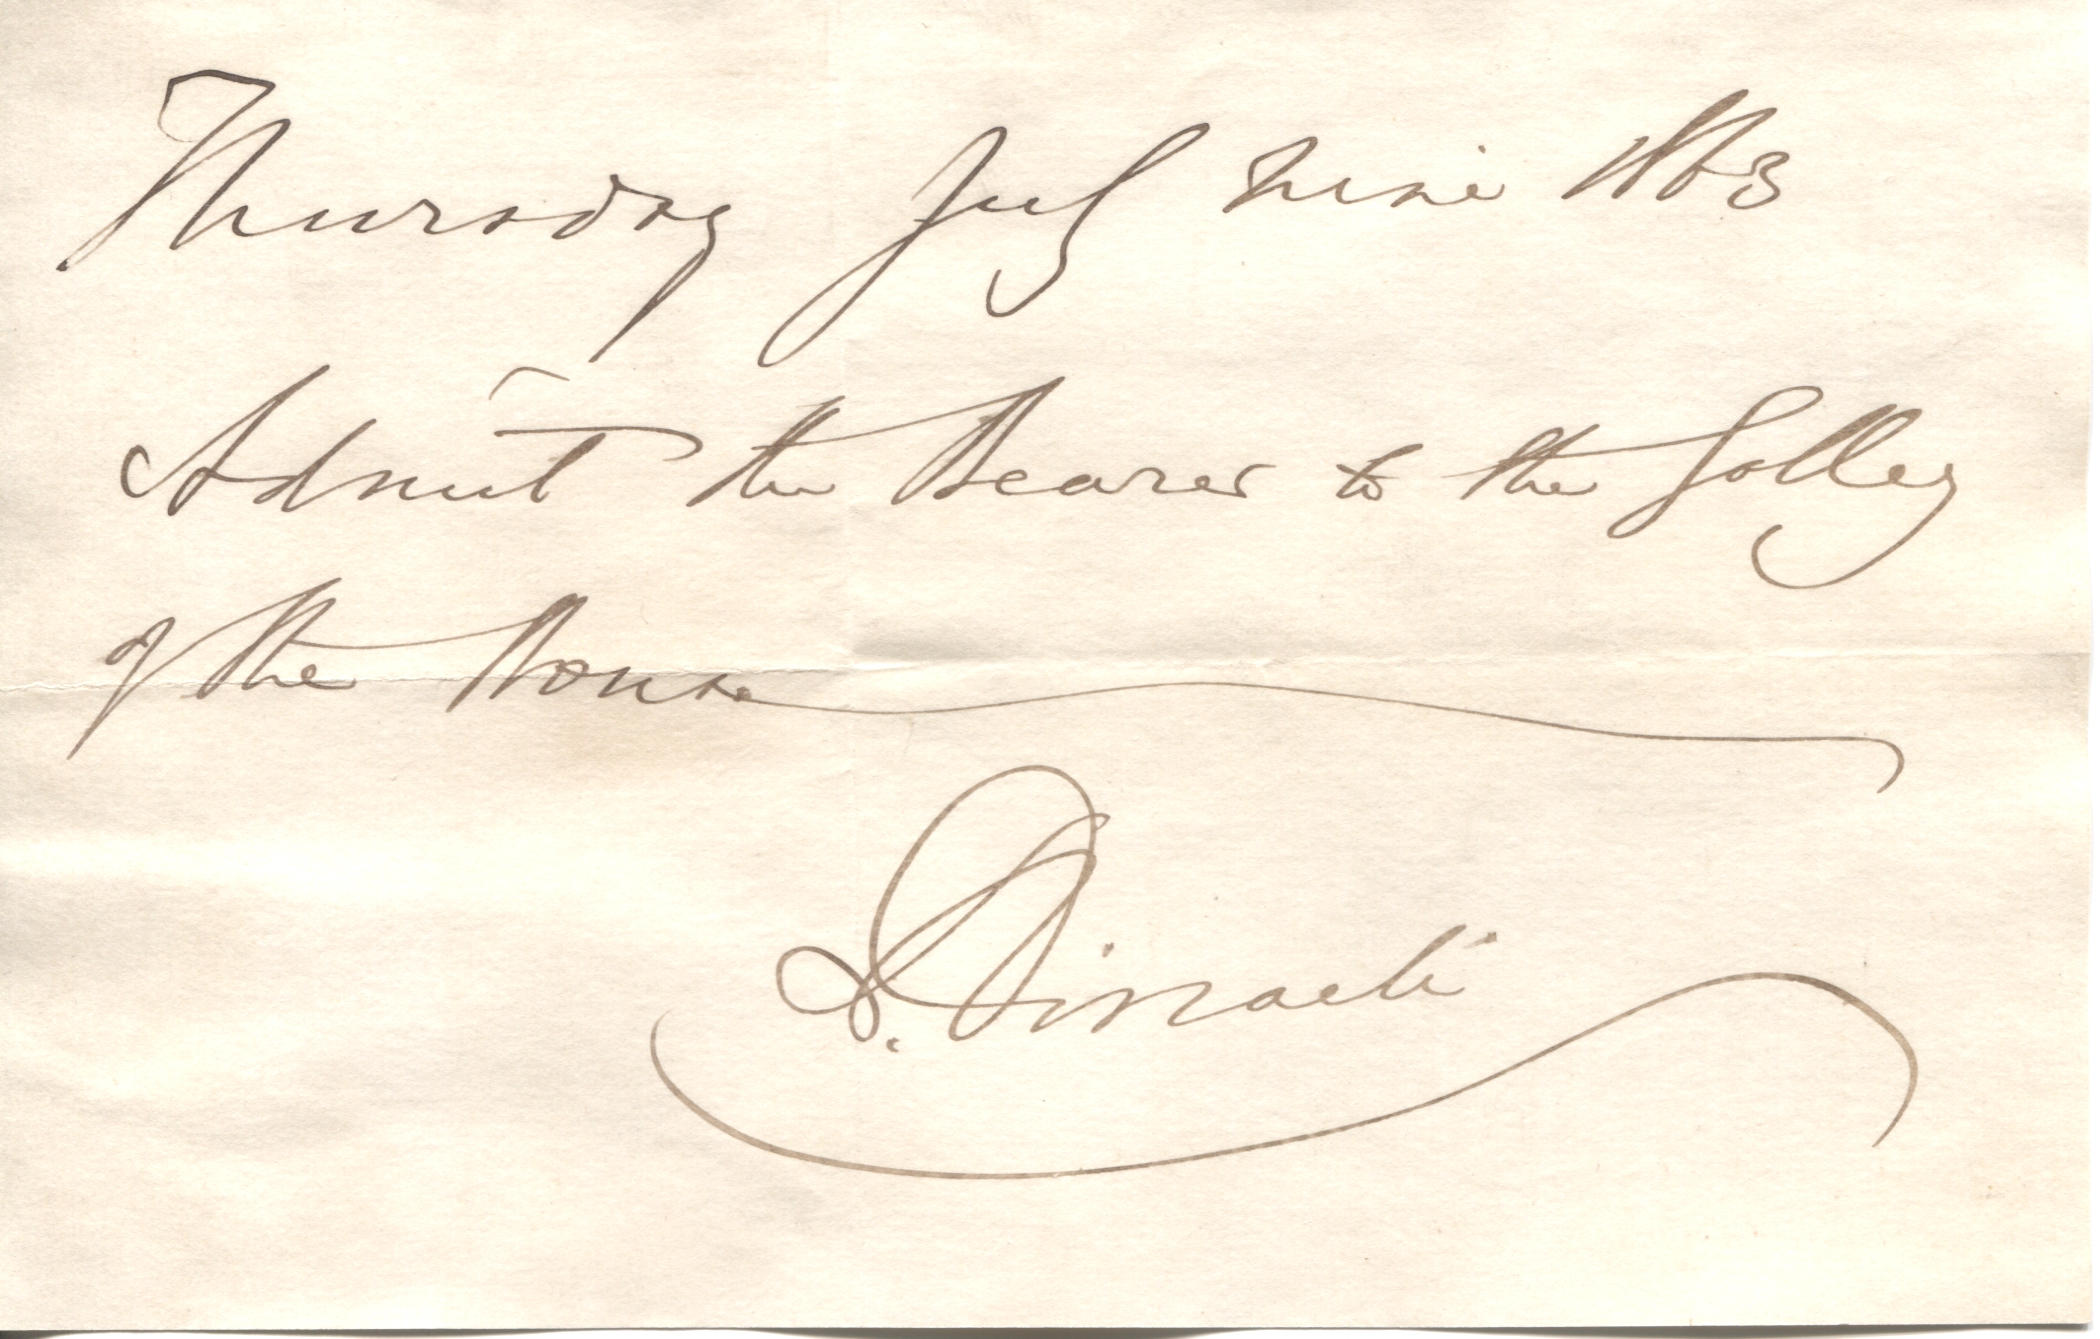 Thursday July nine 1863
Admit the Bearer to the Gallery
of the House
B. Disraeli